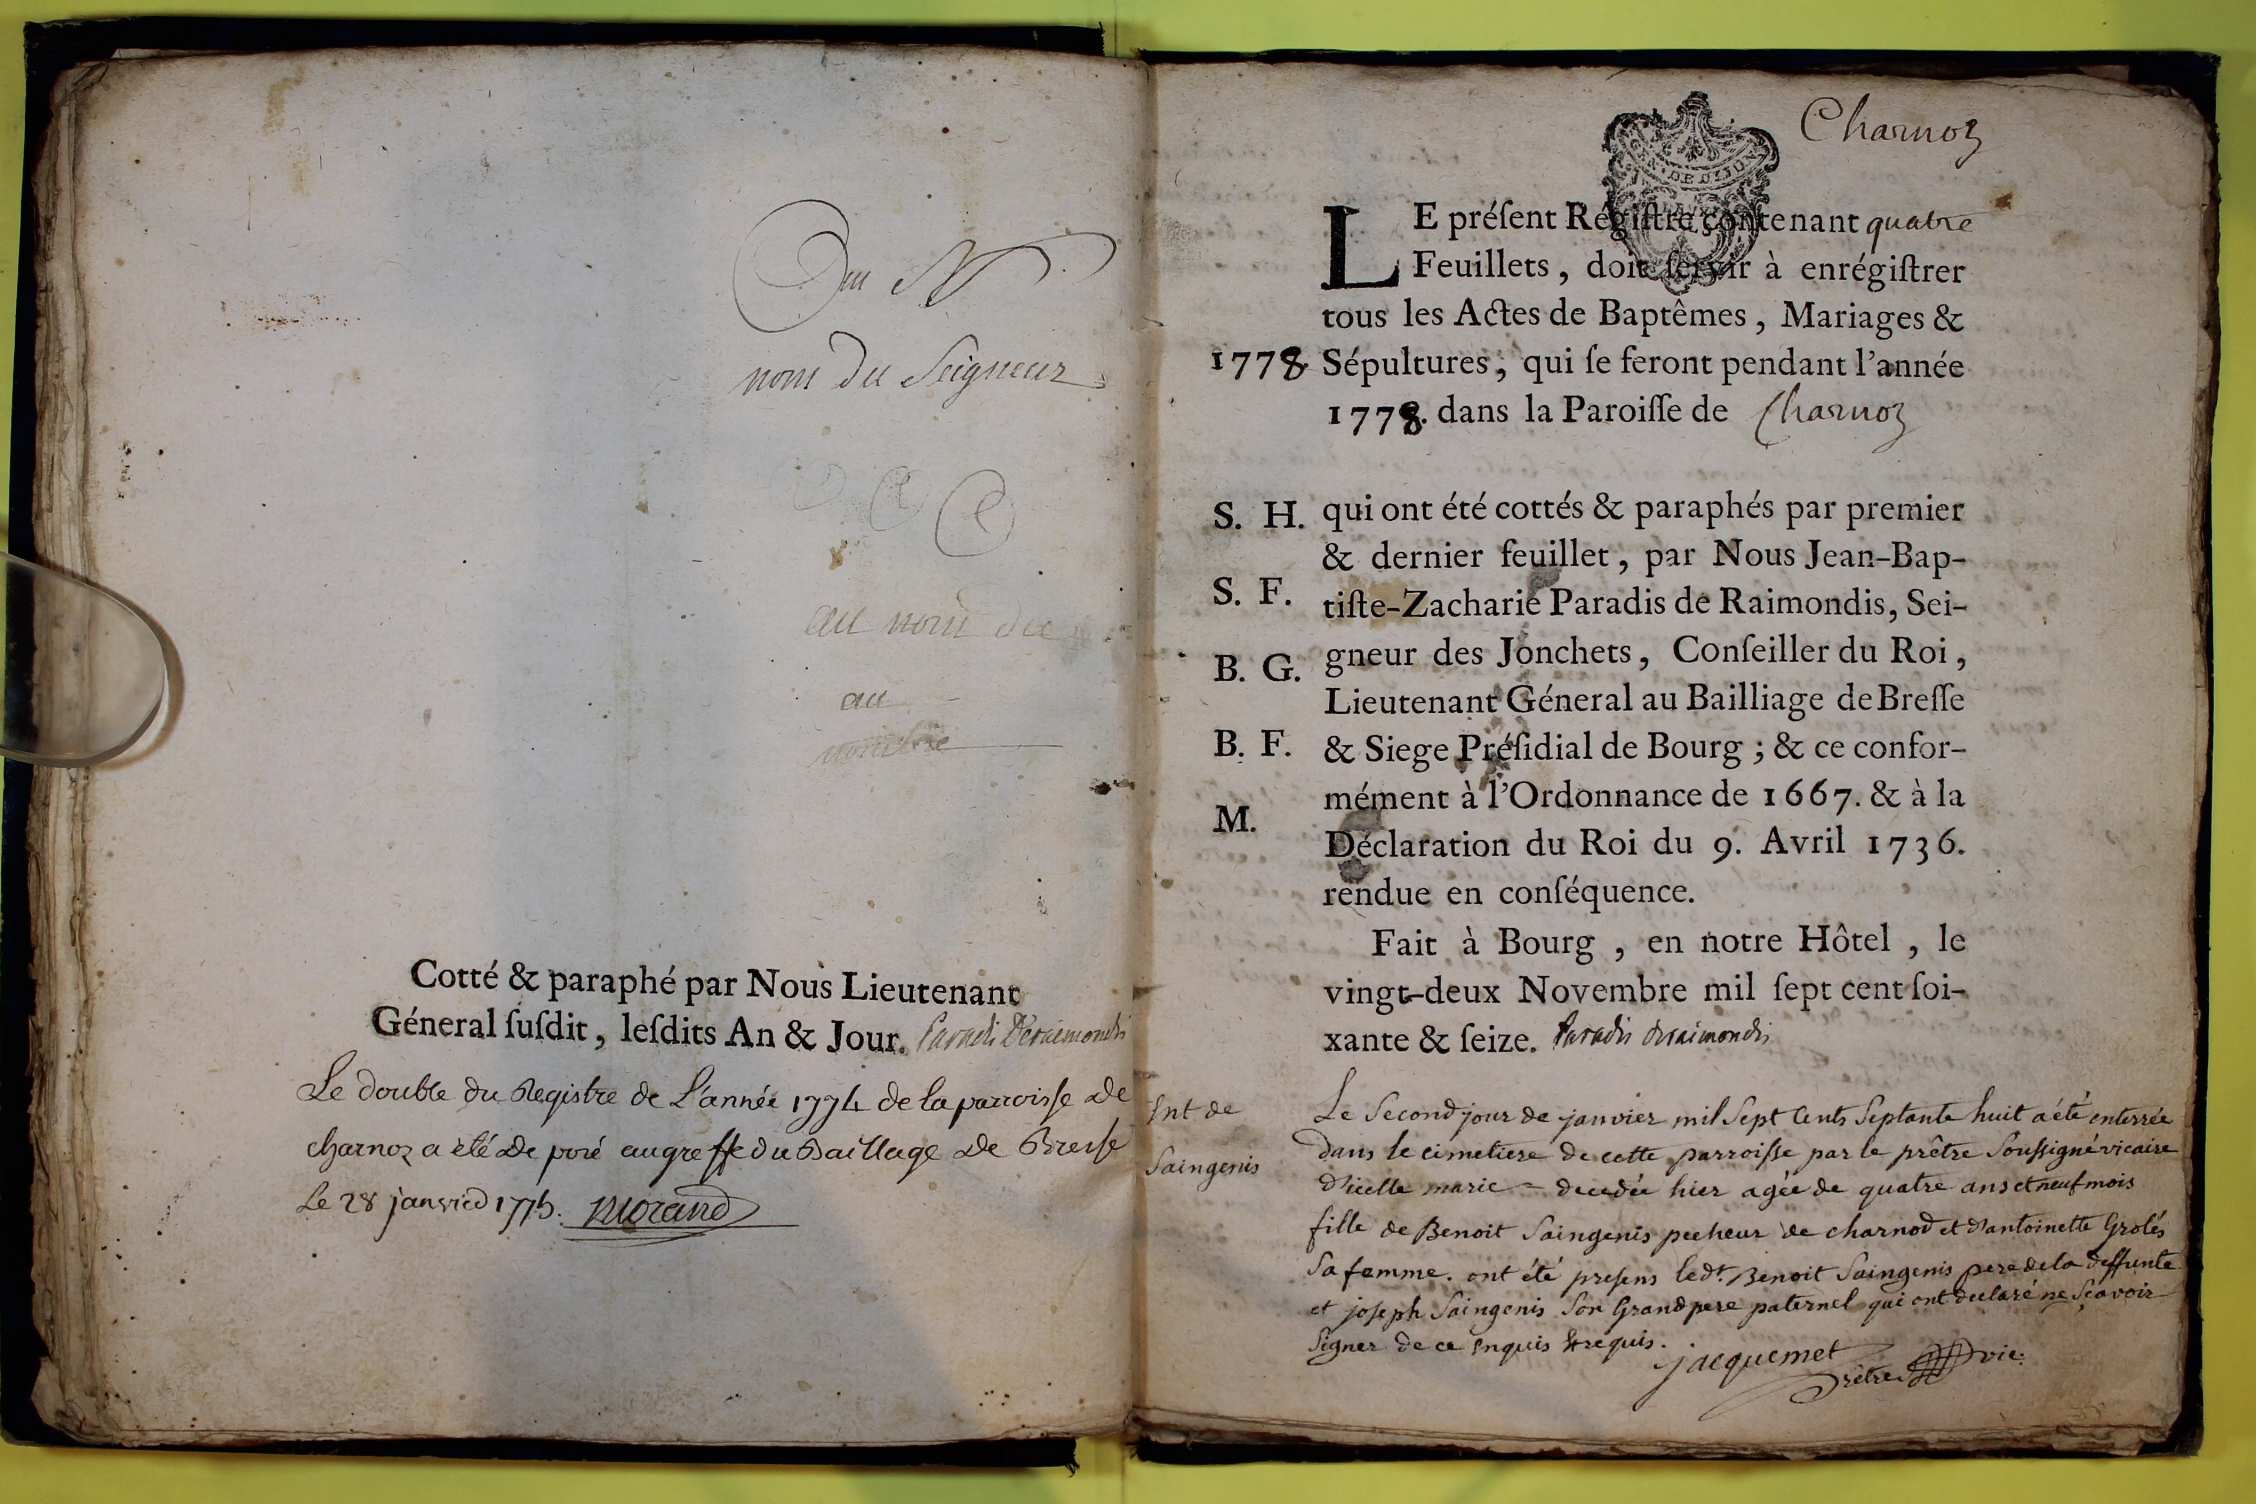 Du N
nom du Seigneur
au nom du
au
nombre
Cotté & paraphé par Nous Lieutenant
Géneral ſuſdit, leſdits An & Jour. Paradis Deraimondis
Le double du Registre de L'année 1774 de la parroisse de
charnoz a été de posé au greffe du Baillage de Bresse
Le 28 janvied 1775. Morand
Charnoz
GEN. DE DIJON
LE préſent Régiſtre contenant quatre
Feuillets, doit ſervir à enrégiſtrer
tous les Actes de Baptêmes, Mariages &
1778. Sépultures, qui ſe feront pendant l'année
1778. dans la Paroiſſe de Charnoz
S. H. qui ont été cottés & paraphés par premier
& dernier feuillet, par Nous Jean-Bap-
S. F. tiſte-Zacharie Paradis de Raimondis, Sei-
B. G. gneur des Jonchets, Conſeiller du Roi,
Lieutenant Géneral au Bailliage de Breſſe
B. F. & Siege Préſidial de Bourg ; & ce confor-
mément à l'Ordonnance de 1667. & à la
M.
Déclaration du Roi du 9. Avril 1736.
rendue en conſéquence.
Fait à Bourg , en notre Hôtel , le
vingt-deux Novembre mil ſept cent ſoi-
xante & ſeize. Paradis Deraimondis
Ent de
Saingenis
Le Second jour de janvier mil Sept Cents Septante huit a été enterrée
Dans le cimetiere de cette parroisse par le prêtre Soussigné vicaire
d'icelle marie - decedée hier agée de quatre ans et neuf mois
fille de Benoit Saingenis pecheur de charnod et d'antoinette Grolés
Sa femme. ont été presens led.t Benoit Saingenis pere de la deffunte
et joseph Saingenis Son Grand pere paternel qui ont declaré ne Sçavoir
Signer de ce Enquis & requis.
jacquemet
Prêtre vic.